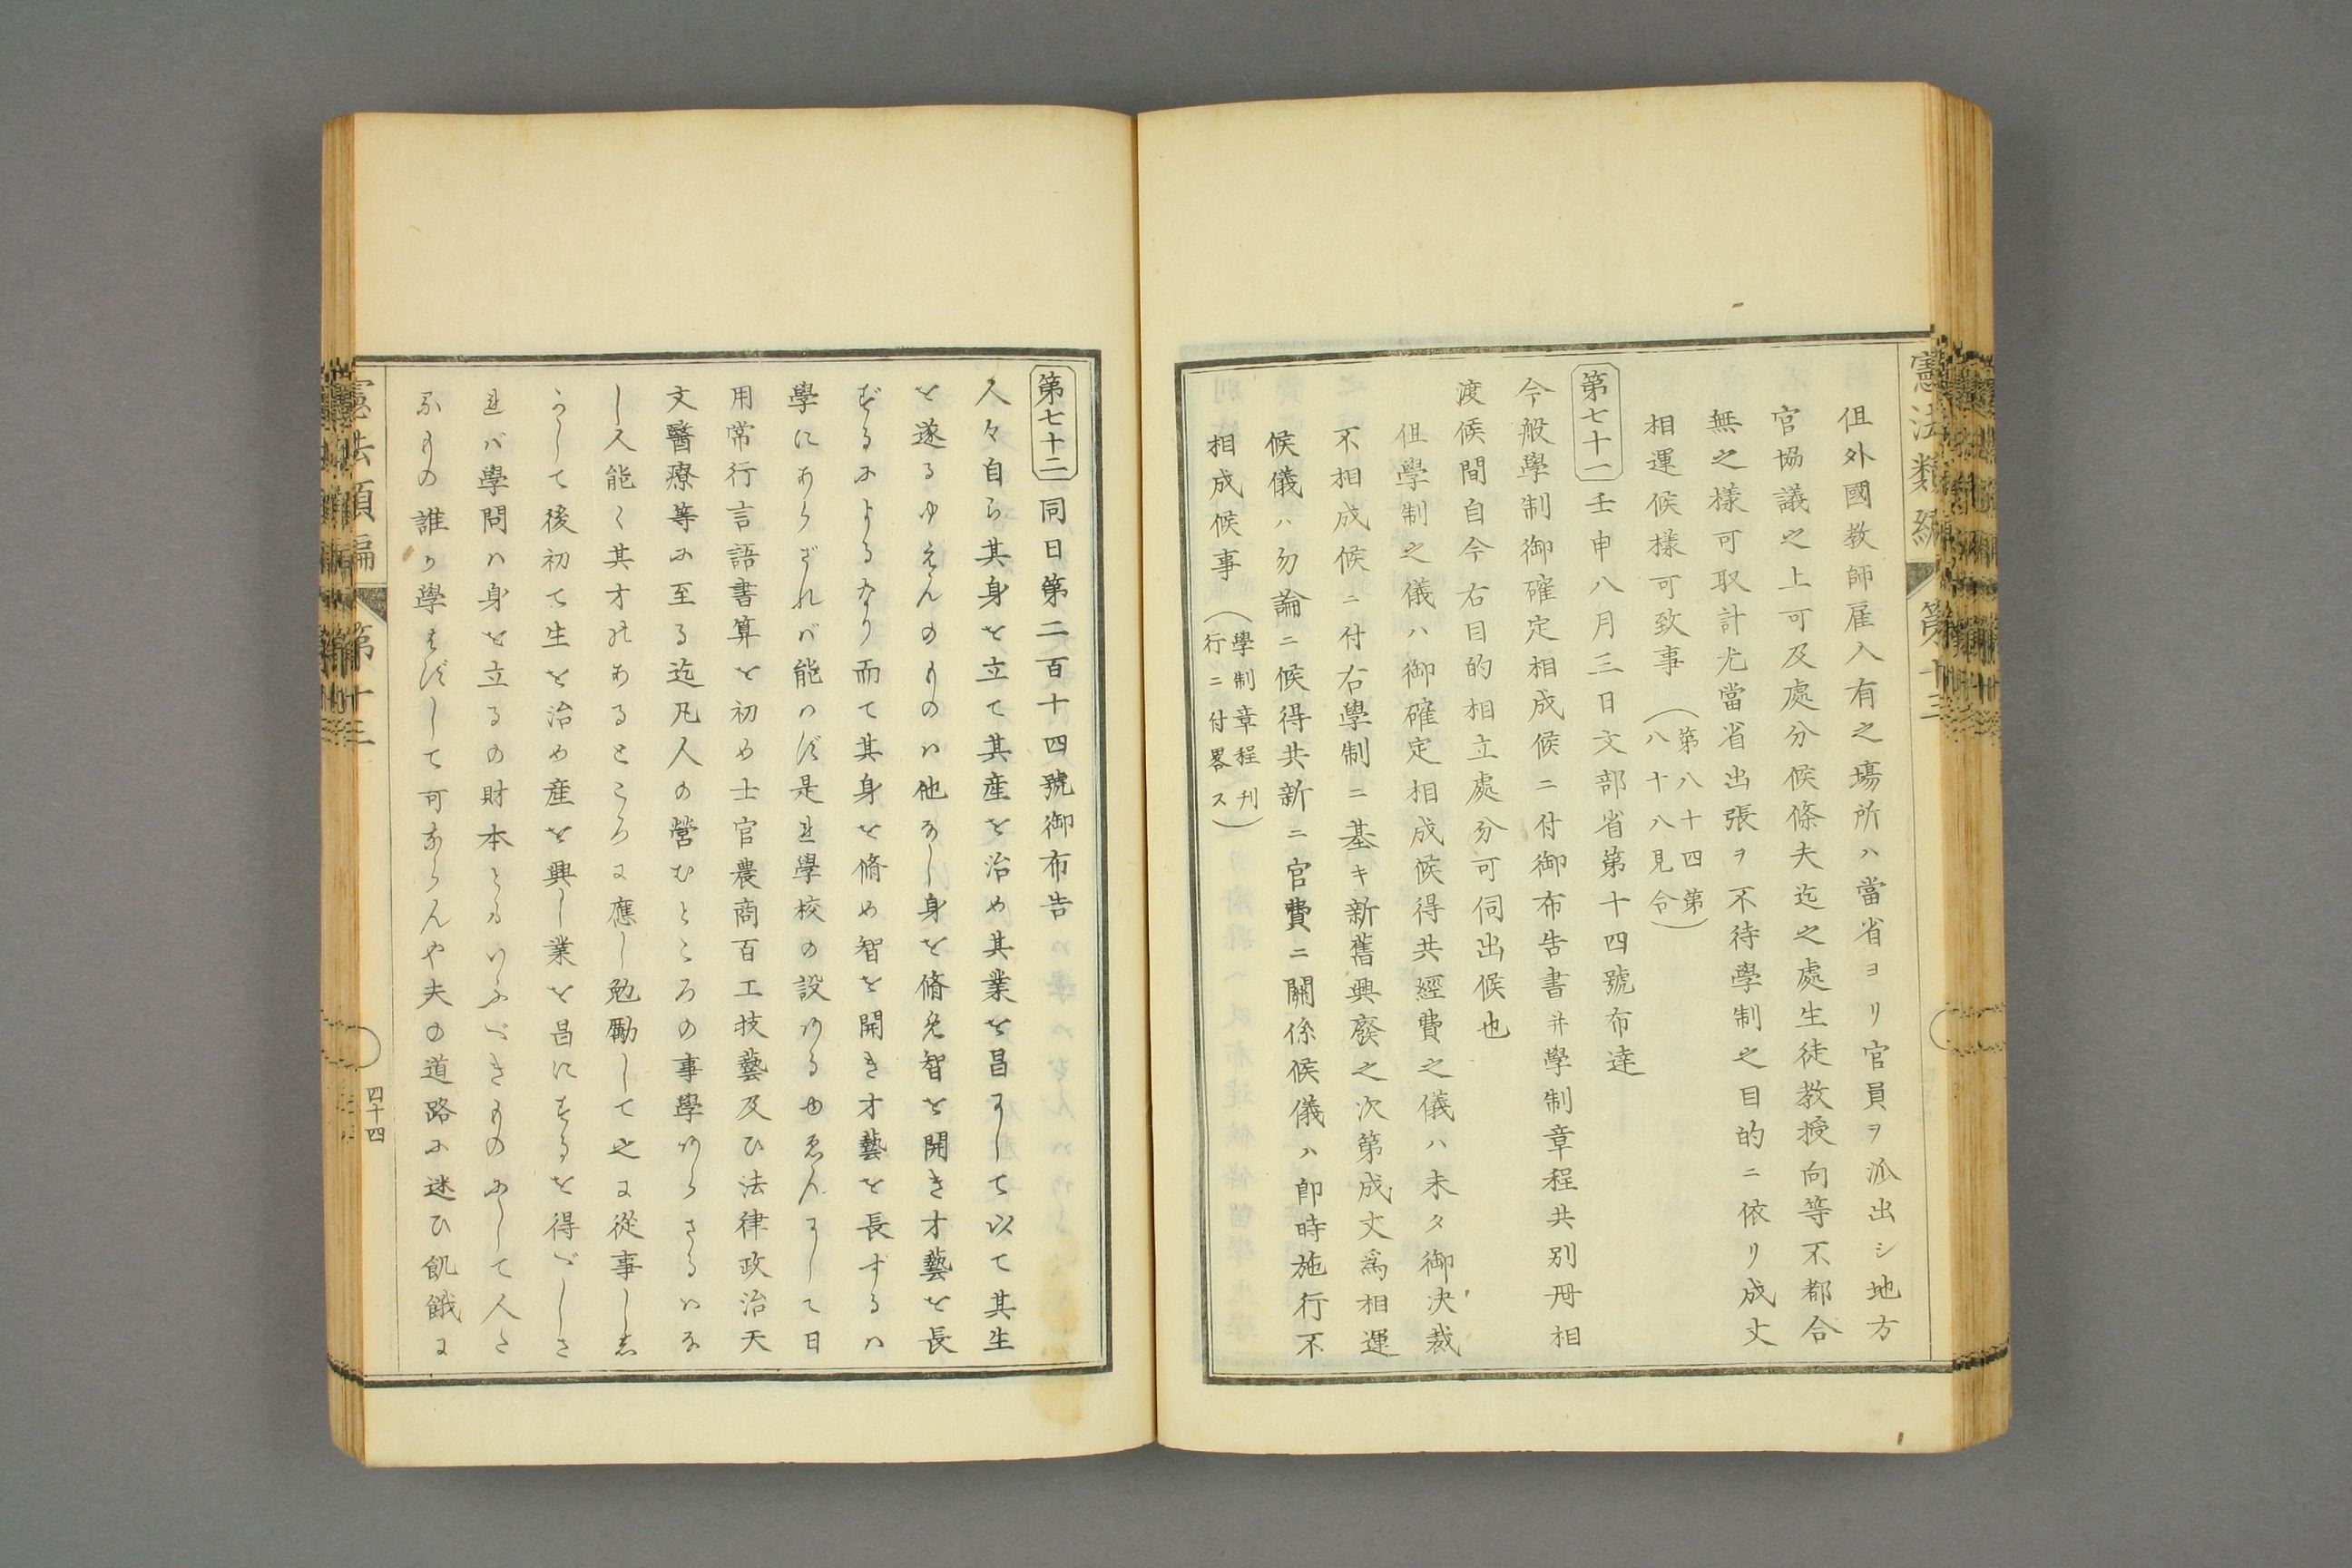 憲法類編 第十三
但外國教師雇入有之場所ハ當省ヨリ官員ヲ派出シ地方
官協議之上可及處分候條夫迄之處生徒教授向等不都合
無之樣可取計尤當省出張ヲ不待學制之目的ニ依リ成丈
相運候樣可致事（第八十四第
八十八見合）
第七十一 壬申八月三日文部省第十四號布達
今般學制御確定相成候ニ付御布告書并學制章程共別冊相
渡候間自今右目的相立處分可伺出候也
但學制之儀ハ御確定相成候得共經費之儀ハ未タ御決裁
不相成候ニ付右學制ニ基キ新舊興廢之次第成丈爲相運
候儀ハ勿論ニ候得共新ニ官費ニ關係候儀ハ即時施行不
相成候事（學制章程刋
行ニ付畧ス）
第七十二 同日第二百十四號御布告
人々自ら其身を立て其産を治め其業を昌にして以て其生
を遂るゆえんのものハ他なし身を脩め智を開き才藝を長
ずるによるなり而て其身を脩め智を開き才藝を長ずるハ
學にあらざれバ能ハず是れ學校の設ある由ゑんにして日
用常行言語書算を初め士官農商百工技藝及ひ法律政治天
文醫療等に至る迄凡人の營むところの事學あらさるハな
し人能く其才のあるところに應し勉勵して之に從事ししか
うして後初て生を治め産を興し業を昌にするを得べしさ
れバ學問ハ身を立るの財本ともいふべきものにして人た
るもの誰か學ばずして可ならんや夫の道路に迷ひ飢餓に
憲法類編 第十三
四十四